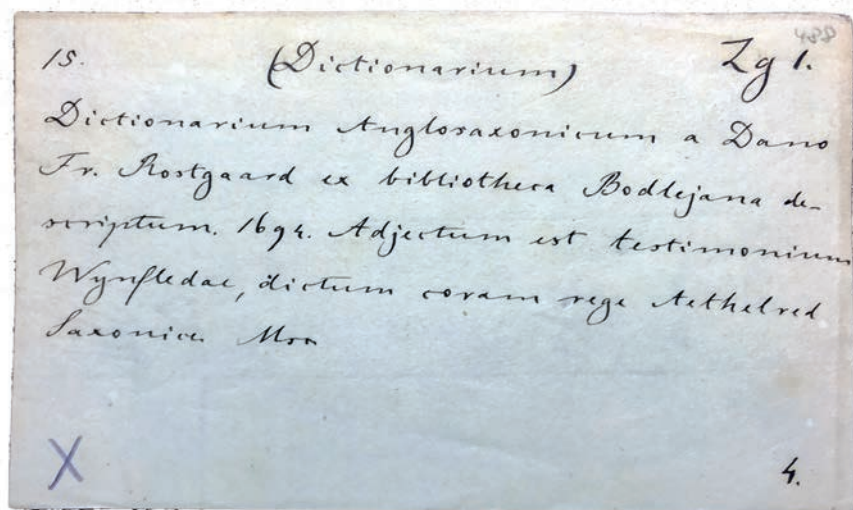 488
15. (Dictionarium) Zg 1.
Dictionarium Anglosaxonicum a Dano
Fr. Rostgaard ex bibliotheca Bodlejana de-
scriptum. 1694. Adjectum est testimonium
Wynfledae, dictum coram rege Aethelred
Saxonice.
X
4.